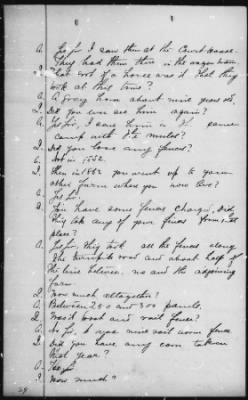 A. Yes Sir I saw them at the Court House.
They had them there in the wagon
What sort of a horse was it that they
took at this time?
A. A Gray horse about nine years old.
Q. Did you ever see him again?
A. Yes Sir, I saw him in the same
camp with the mules?
Q. Did you lose any fences?
A. Not in 1862.
Q. Then in 1862 you went up to your
other farm where you now live?
A. Yes Sir.
Q. You have some fences charged, did
they take any of your fences from that
place?
A. Yes Sir, they took all the fences along
the turnpike road and about half of
the line between me and the adjoining
farm.
Q. How much altogether?
A. Between 200 and 300 panels.
Q. Was it post and rail fence?
A. No Sir. It was nine rail worm fence
Q. Did you have any corn taken
that year?
A. Yes Sir
Q. How much?